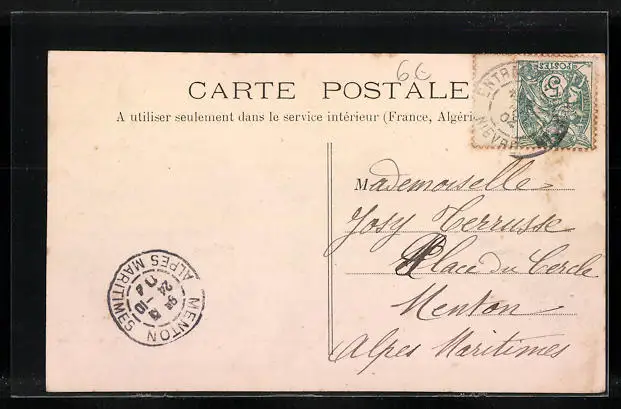 66
CARTE POSTALE
A utiliser seulement dans le service intérieur (France, Algéri
Mademoiselle
Josy Terrusse
Place du Cercle
Menton
Alpes Maritimes
POSTES
5
ENTR
NIÈVR
MENTON
ALPES MARITIMES
24
-10